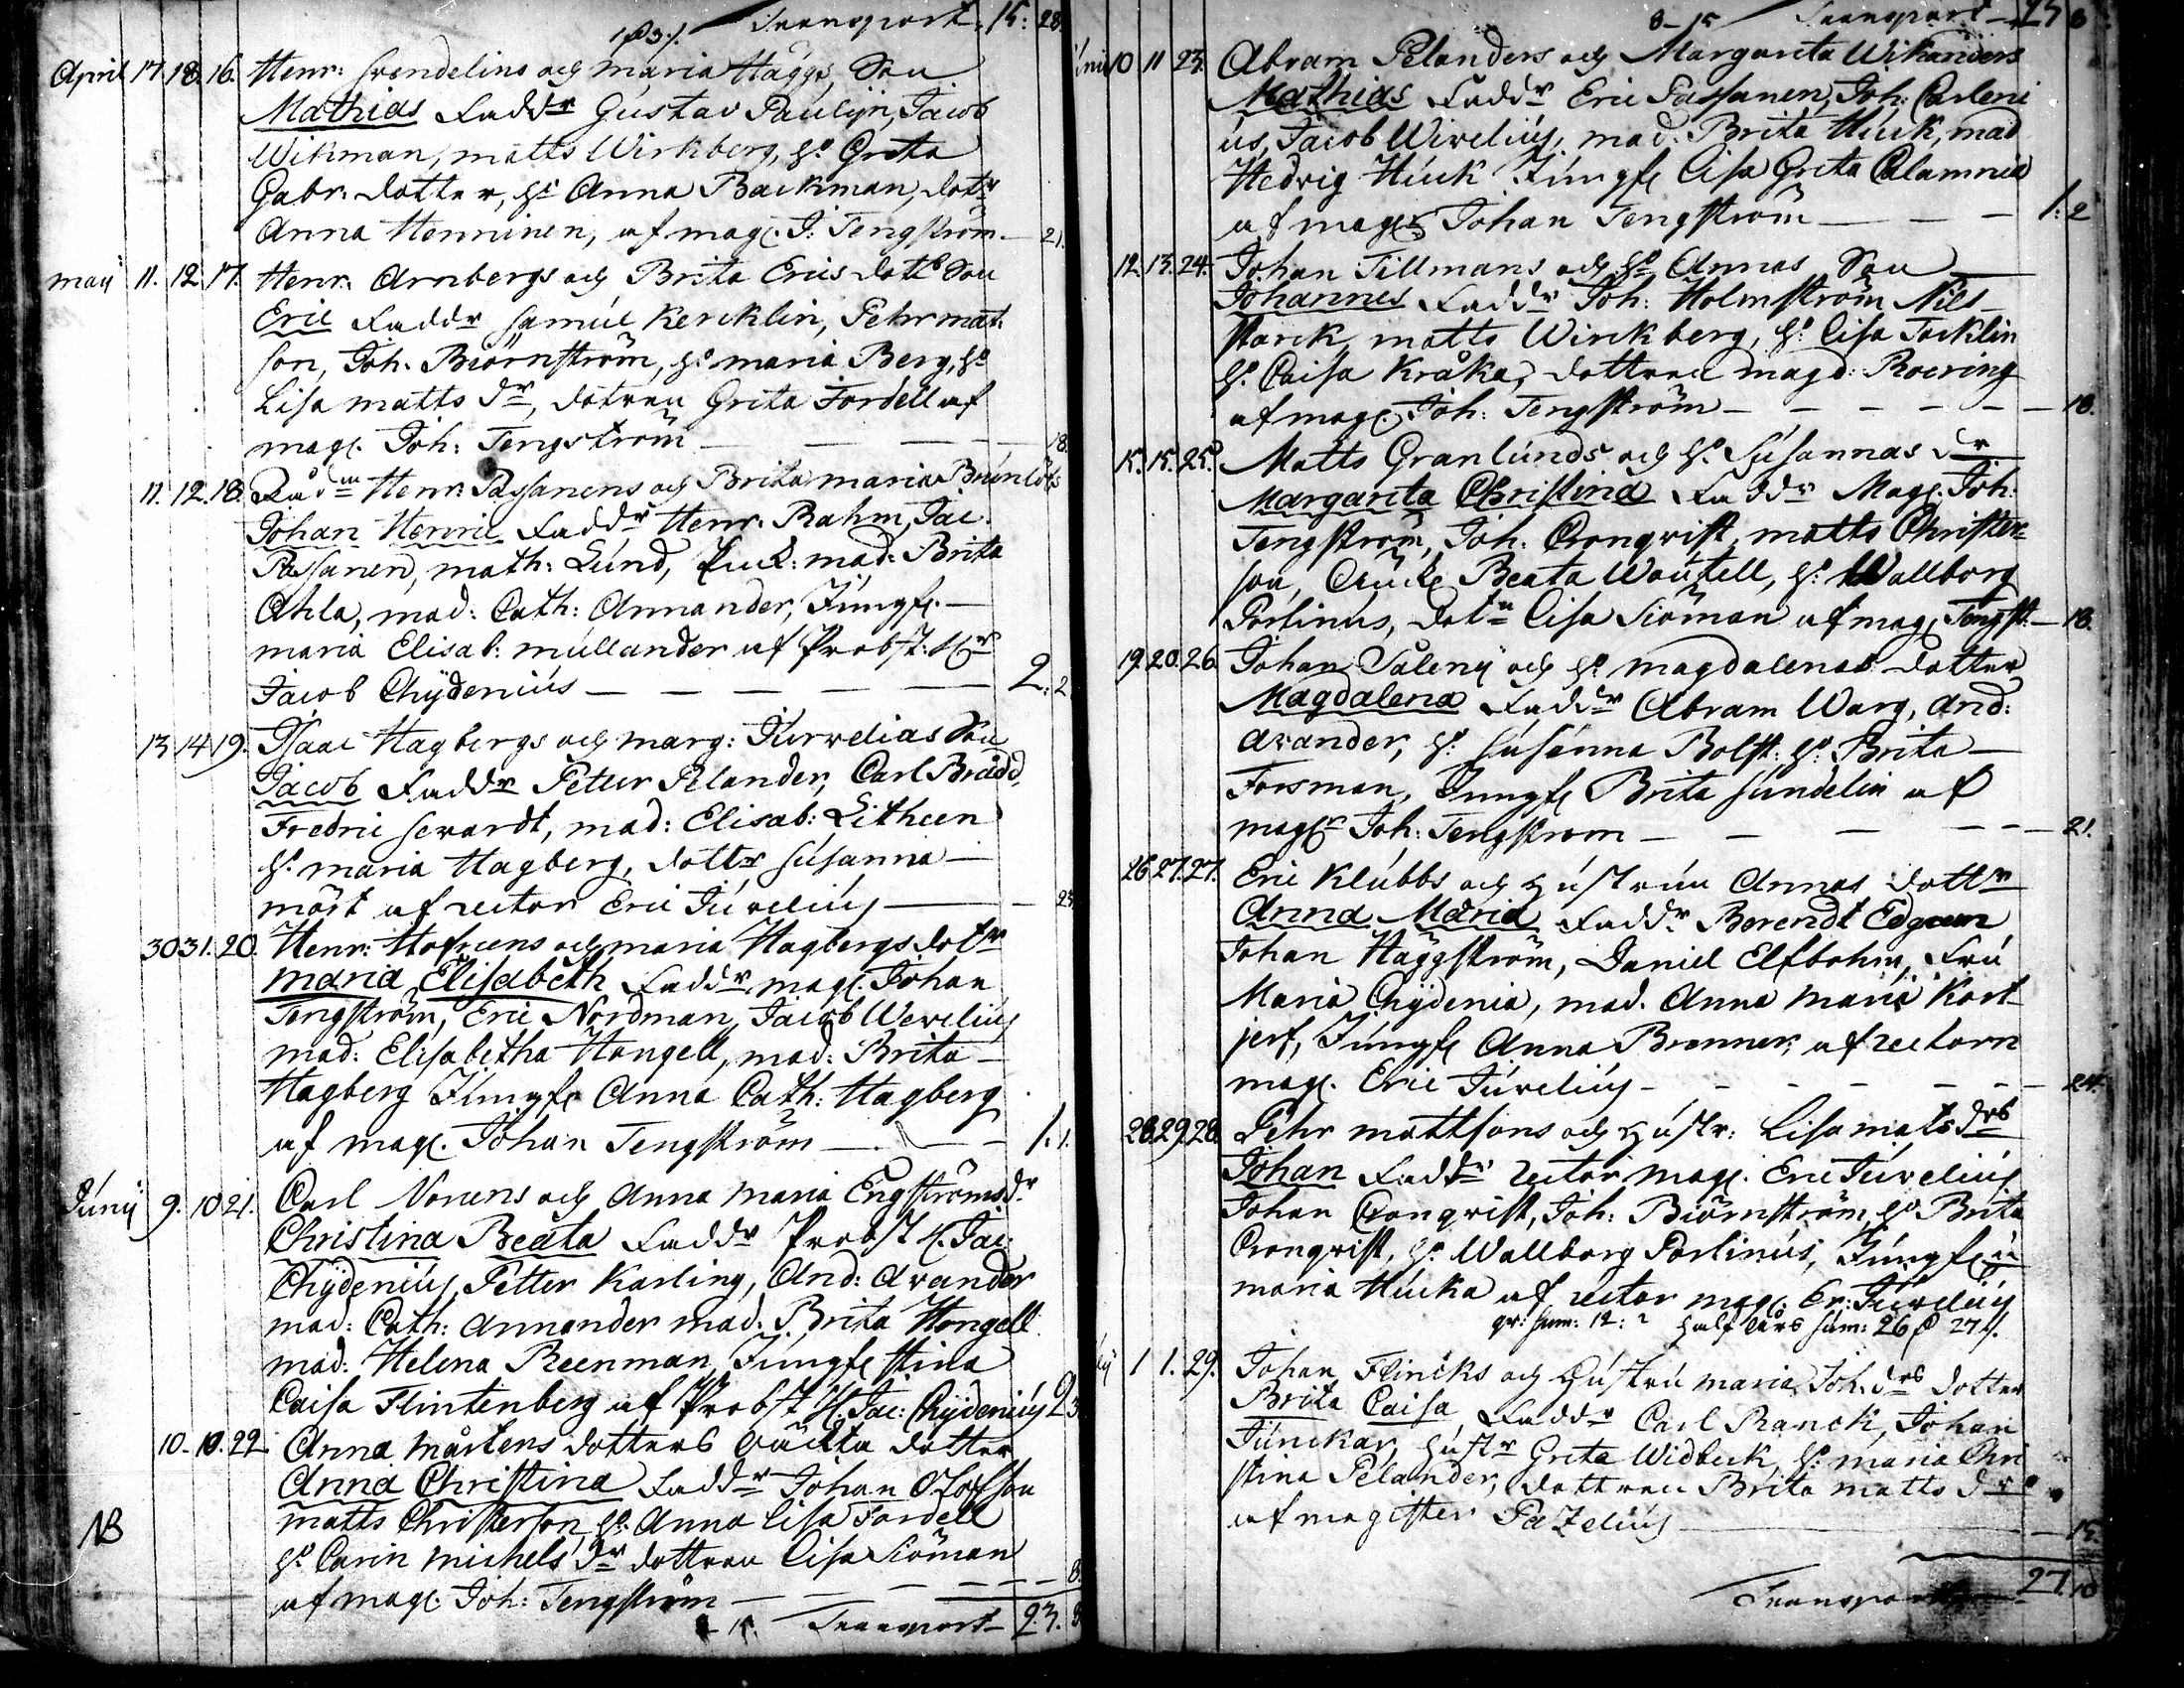 Transport. 15: 28.
April 17. 18. 16. Henr: Svendelins och Maria Häggs Son
Mathias Faddr Gustav Paulijn, Jacob
Wikman, matts Wirkberg, h. Greta
Gabr: dotter, h. Anna Backman, dotr
Anna Henninen, af mag. J: Tengström — 21.
maij 11. 12. 17. Henr: Arnbergs och Brita Erics dotts Son
Eric Faddr Samuel Kercklin, Pehr mat:
son, Joh. Biörnström, h. maria Berg, h.
Lisa matts dr, dotren Greta Fordell af
mag. Joh: Tengström — 18.
11. 12. 18. Rådm Henr: Passanens och Brita maria
Johan Henric Faddr Henr. Rahm, Jac.
Passanen, math: Lund, mad: Brita
Ahla, mad: Cath: Annander, Jungfr.
maria Elisab: mullander af Probst. Hr
Jacob Chydenius — 2: 2
13 14 19. Isaac Hagbergs och marg: Jurvelias Son
Jacob Faddr Petter Pelander, Carl Brådd,
Fredric sevardt, mad: Elisab: Litheen
h. maria Hagberg, dottr Susanna
möst af rector Eric Juvelius —
30 31. 20. Henr: Hofreens och maria Hagbergs dotr
maria Elisabeth Faddr mag. Johan
Tengström, Eric Nordman, Jacob Wevelius
mad: Elisabetha Hongell, mad: Brita
Hagberg Jungfr Anna Cath: Hagberg
af mag. Johan Tengström — 1. 1.
Junij 9. 10 21. Carl Norens och Anna Maria Engströms dr
Christina Beata Faddr Probst h. Jac:
Chydenius, Petter Karling, And: Avander
mad: Cath: Annander mad. Brita Hongell
mad: Helena Reenman, Jungfr Stina
Caisa Flintenberg af Probst H. Jac: Chydenius 2 3
10. 10. 22 Anna Mårtens dotters oäckta dotter
Anna Christina Faddr Johan Olofsson
matts Christerson, h. Anna Lisa Fordell
NB
h. Carin michels dr dottren Lisa Siöman
af mag. Joh: Tengström — 8.
Transport 23. 8
8–15 Transport — 23 8
10 11 23. Abram Pelanders och Margareta Wikanders
Mathias Faddr Eric Passanen, Joh: Carleni
us, Jacob Wivelius, mad. Brita Huck, mad
Hedvig Huck Jungfr Lisa Greta Calamnia
af magr Johan Tengström — 1: 2
12. 13. 24. Johan Tillmans och h. Annas Son
Johannes Faddr Joh: Holmström Nils
Starck, matts Wirckberg, h. Lisa Tacklin
h. Caisa Kråka, dottren magd: Roering
af mag. Joh: Tengström — 18.
15. 15. 25. Matts Granlunds och h. Susannas dr
Margareta Christina Faddr Mag. Joh:
Tengström, Joh: Cronqvist, matts Christer=
son, Beata h. Wallborg
Porlinus, dotrn Lisa Siöman af mag. Tengst. — 18.
19. 20. 26 Johan Salenij och h. magdalenas dotter
Magdalena Faddr Abram Warg, And:
Avander, h. Susanna Bolst. h. Brita
Forsman, Jungfr Brita Sundelin af
magr Joh: Tengström — 21.
26 27. 27. Eric Klubbs och Hustrun Annas dottr
Anna Maria Faddr Berendt Edgren
Johan Häggström, Daniel Elfbohm, Fru
Maria Chydenia, mad. Anna Maria Kort
jerf, Jungfr Anna Brenner, af rectorn
mag. Eric Juvelius — 24.
28 29 28. Pehr mattsons och Hustr: Lisa mats drs
Johan Faddr rector mag. Eric Juvelius
Johan Cronqvist, Joh: Biörnström, h. Brita
Cronqvist, h. Wallborg Porlinus, Jungfrn
maria Hucka af rector mag. Er: Juvelius
qv: sum: 12: 2 half åhrs sum: 26 D 27.
1 1. 29. Johan Flincks och Hustru maria Joh: drs dotter
Brita Caisa Faddr Carl Ranck, Johan
Junckar, Hustr Greta Widbeck, h. maria Chri
stina Pelander, dottren Brita matts dr
af magister Pazelius — 15.
Transport 27. 10